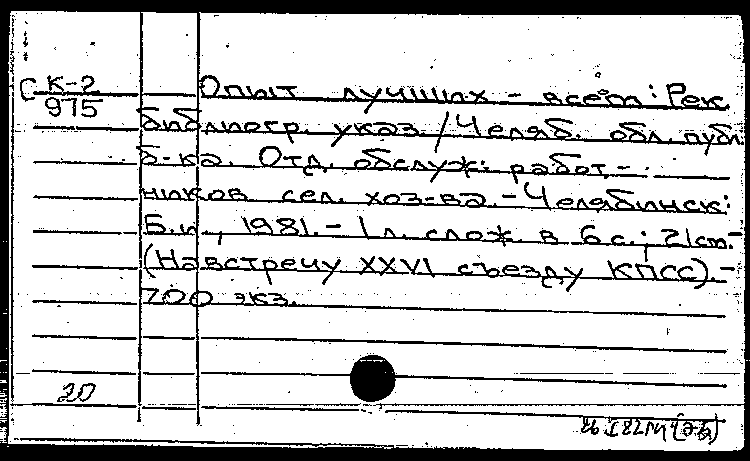 С К-2
975
Опыт лучших - всем: Рек.
библиогр. указ. / Челяб. обл. публ.
б-ка. Отд. обслуж. работ-
ников сел. хоз-ва. - Челябинск:
Б.и., 1981. - 1 л. слож. в 6 с.; 21 см. -
(Навстречу XXVI съезду КПСС). -
700 экз.
20